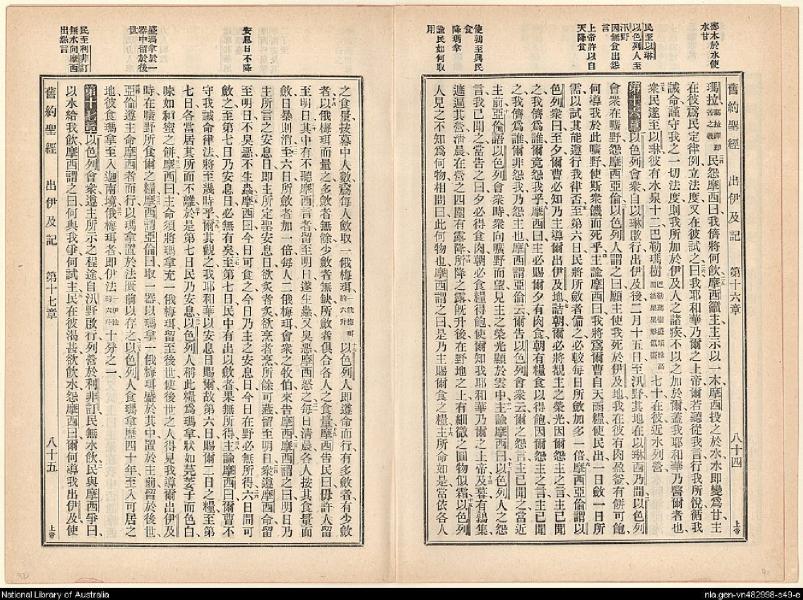 舊約聖經 出伊及記 第十六章 八十四 上帝
擲木於水使
水甘
瑪拉
民怨摩西曰我儕將何飲摩西籲主主示以一木摩西投之於水水即變爲甘主
在彼爲民定律例立法度又在彼試之曰我耶和華乃爾之上帝爾若聽從我言行我所悅循我
誡命謹守我之一切法度則我所加於伊及人之諸疾不以之加於爾蓋我耶和華乃醫爾者也
衆民遂至以琳彼有水泉十二巴勒瑪樹
七十在彼近水列營
民至以琳
以色列人至
汛野
因無食出怨
言
上帝許以自
天降食
第十六章以色列會衆自以琳啟行出伊及後二月十五日至汛野其地在以琳西乃間以色列
會衆在曠野怨摩西亞倫以色列人謂之曰願主使我死於伊及地我在彼有肉盈釜有餅可飽
何導我於此曠野使斯衆饑而死乎主諭摩西曰我將爲爾曹自天雨糧使民出一日斂一日所
需以試其能遵行我律否至第六日民將所斂者備之必較每日所斂加多一倍摩西亞倫謂以
色列衆曰至夕爾曹必知乃主導爾出伊及地詰朝爾必將覩主之榮光因爾怨主之言主已聞
之我儕爲誰爾竟怨我乎摩西曰主必賜爾夕有肉食朝有糧食以得飽因爾怨主之言主已聞
之我儕爲誰爾非怨我乃怨主也摩西謂亞倫云爾告以色列會衆云爾之怨言主已聞之當近
主前亞倫語以色列會衆時衆向曠野而望見主之榮光顯於雲中主諭摩西曰以色列人之怨
言我已聞之當告之曰夕必得食肉朝必食糧得飽使爾知我耶和華乃爾之上帝及暮有鶉集
遍逼其營清晨在營之四圍有露降所降之露旣升後在野地之上有細微之圓物似霜以色列
人見之不知爲何物相問曰此何物也摩西謂之曰是乃主賜爾食之糧主所命如是當依各人
使鶉至與民
食
降瑪拿
諭民如何取
用
之食量按幕中人數爲每人斂取一俄梅珥
以色列人即遵命而行有多斂者有少斂
者以俄梅珥而量之多斂者無餘少斂者無缺所斂者俱合各人之食量摩西告民曰毋許人留
至明日其中有不聽摩西言者留至明日遂生蟲又臭惡摩西怒之每日清晨各人按其食量而
斂日暴則消至六日所斂者加一倍每人二俄梅珥會衆之牧伯來告摩西摩西謂之曰明日乃
主所言之安息日即主所定聖安息日欲炙者炙欲烹者烹所餘可藏留至明日衆遵摩西命留
至明日不臭惡不生蟲摩西曰今日可食之今日乃主之安息日今日在野必無所得六日間可
斂之至第七日乃安息日必無有矣至第七日民中有出以斂者果無所得主諭摩西曰爾曹不
守我誡命律法將至幾時乎爾其觀之我耶和華以安息日賜爾故第六日賜爾二日之糧至第
七日各當居其所而不離於是第七日民乃安息以色列人稱此糧爲瑪拿狀如芫荽子而色白
味如和蜜之餅摩西曰主命須將瑪拿充一俄梅珥留至後世使後世之人得見我導爾出伊及
時在曠野所食爾之糧摩西謂亞倫曰取一器以瑪拿一俄梅珥盛於其中置於主前留於後世
亞倫遵主命摩西者而行以瑪拿置於法匱前以存之以色列人食瑪拿歷四十年至入可居之
地彼食瑪拿至入迦南境俄梅珥者即伊法
十分之一
第十七章以色列會衆遵主所示之程途自汛野啟行列營於利非訂民無水飲民與摩西爭曰
以水給我飲摩西謂之曰何與我爭何試主民在彼渴甚欲飲水怨摩西曰爾何導我出伊及使
安息日不降
盛瑪拿於一
器中留於後
世
民至利非訂
無水向摩西
出怨言
舊約聖經 出伊及記 第十七章 八十五 上帝
National Library of Australia
nla.gen-vn482998-s49-e